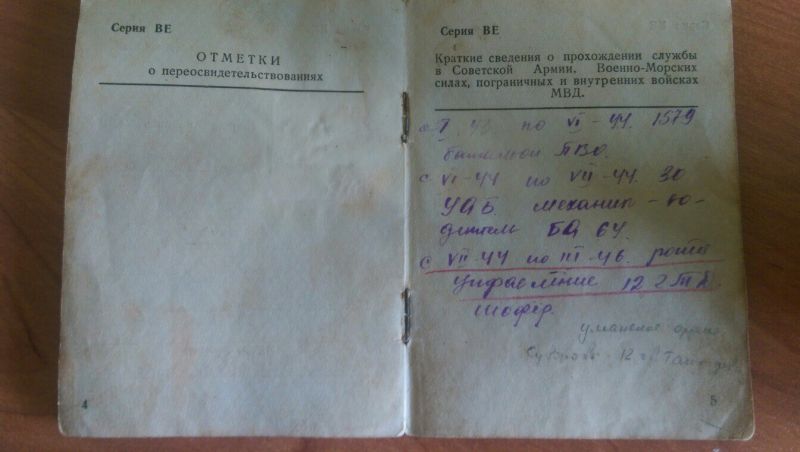 Серия ВЕ
ОТМЕТКИ
о переосвидетельствованиях
4
Серия ВЕ
Краткие сведения о прохождении службы
в Советской Армии, Военно-Морских
силах, пограничных и внутренних войсках
МВД.
по VI-44. 1579
ПВО.
с VI-44 по VII-44. 30
УАБ. механик-во-
дитель БА 64.
с VII-44 по III-46. рота
управление 12 г ТД
шофер.
уманское
12
5